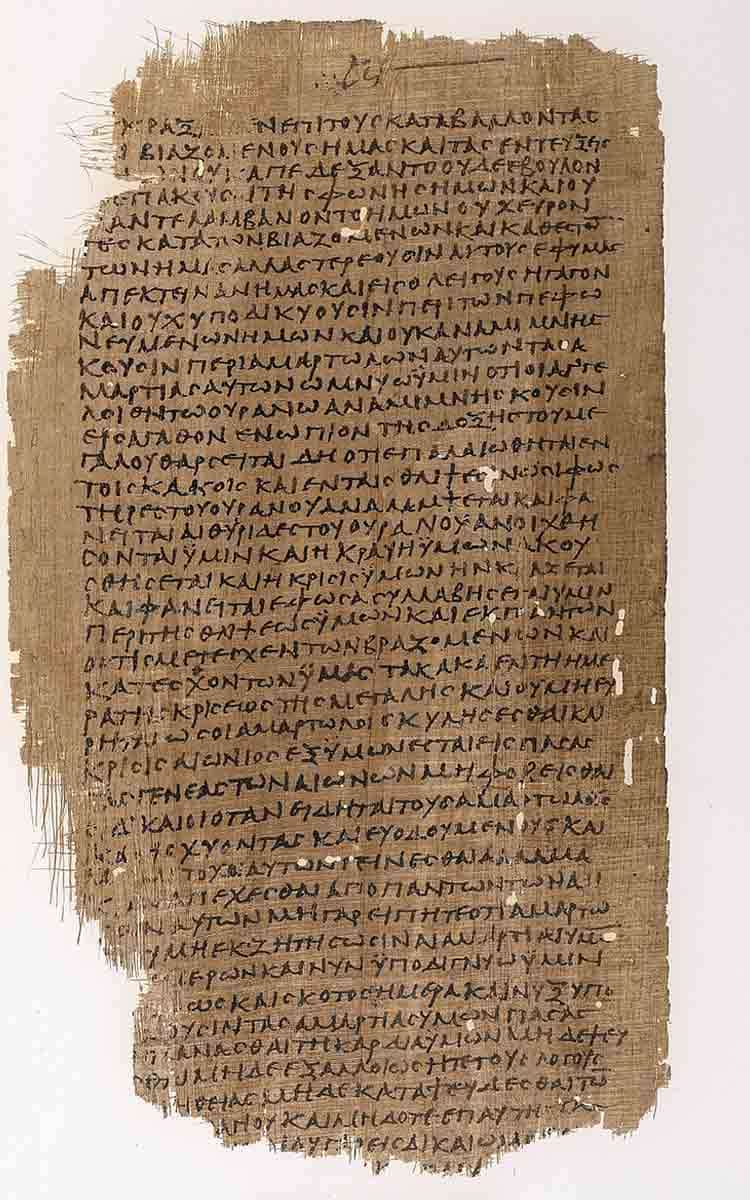 ΝΕΠΙΤΟΥΣΚΑΤΑΒΑΛΛΟΝΤΑΣ
ΒΙΑΖΟΜΕΝΟΥΣΗΜΑΣΚΑΙΤΑΣΕΝΤΕΥΞΙΣ
ΑΠΕΔΕΞΑΝΤΟΟΥΔΕΕΒΟΥΛΟΝ
ΤΗΣΦΩΝΗΣΗΜΩΝΚΑΙΟΥ
ΑΝΤΕΛΑΜΒΑΝΟΝΤΟΗΜΩΝΟΥΧΕΥΡΟΝ
ΤΕΣΚΑΤΑΤΩΝΒΙΑΖΟΜΕΝΩΝΚΑΙΚΑΘΕΣΤΟ
ΤΩΝΗΜΑΣΑΛΛΑΣΤΕΡΕΟΥΣΙΝΑΥΤΟΥΣΕΦΥΜΑΣ
ΑΠΕΚΤΕΙΝΑΝΗΜΑΣΚΑΙΕΙΣΟΛΕΙΓΟΥΣΗΓΑΓΟΝ
ΚΑΙΟΥΧΥΠΟΔΙΚΥΟΥΣΙΝΠΕΡΙΤΩΝΠΕΦΩ
ΝΕΥΜΕΝΩΝΗΜΩΝΚΑΙΟΥΚΑΝΑΜΙΜΝΗΣ
ΚΟΥΣΙΝΠΕΡΙΑΜΑΡΤΩΛΩΝΑΥΤΩΝΤΑΣΑ
ΜΑΡΤΙΑΣΑΥΤΩΝΩΜΝΥΩΫΜΙΝΟΤΙΟΙΑΓΓΕ
ΛΟΙΕΝΤΩΟΥΡΑΝΩΑΝΑΜΙΜΝΗΣΚΟΥΣΙΝ
ΕΙΣΑΓΑΘΟΝΕΝΩΠΙΟΝΤΗΣΔΟΞΗΣΤΟΥΜΕ
ΓΑΛΟΥΘΑΡΣΕΙΤΑΙΔΗΟΤΙΕΠΑΛΑΙΩΘΗΤΑΙΕΝ
ΤΟΙΣΚΑΚΟΙΣΚΑΙΕΝΤΑΙΣΘΛΙΨΕΣΙΝΩΣΙΦΩΣ
ΤΗΡΕΣΤΟΥΟΥΡΑΝΟΥΑΝΑΛΑΜΨΕΤΑΙΚΑΙΦΑ
ΝΕΙΤΑΙΑΙΘΥΡΙΔΕΣΤΟΥΟΥΡΑΝΟΥΑΝΟΙΧΘΗ
ΣΟΝΤΑΙΫΜΙΝΚΑΙΗΚΡΑΥΗΫΜΩΝΑΚΟΥ
ΣΘΗΣΕΤΑΙΚΑΙΗΚΡΙΣΙΣΫΜΩΝΗΝΚΡΑΖΕΤΑΙ
ΚΑΙΦΑΝΕΙΤΑΙΕΦΩΣΑΣΥΛΛΑΒΗΣΕΤΑΙΥΜΙΝ
ΠΕΡΙΤΗΣΘΛΙΨΕΩΣΫΜΩΝΚΑΙΕΚΠΑΝΤΩΝ
ΟΣΤΙΣΜΕΤΕΣΧΕΝΤΩΝΒΙΑΖΟΜΕΝΩΝΚΑΙ
ΚΑΤΕΣΘΟΝΤΩΝΫΜΑΣΤΑΚΑΚΑΕΝΤΗΗΜΕ
ΡΑΤΗΣΚΡΙΣΕΩΣΤΗΣΜΕΓΑΛΗΣΚΑΙΟΥΜΗΕΥ
ΡΗΤΑΙΩΣΟΙΑΜΑΡΤΩΛΟΙΣΚΥΛΗΣΕΣΘΑΙΚΑΙ
ΚΡΙΣΙΣΑΙΩΝΙΟΣΕΞΫΜΩΝΕΣΤΑΙΕΙΣΠΑΣΑΣ
ΤΑΣΓΕΝΕΑΣΤΩΝΑΙΩΝΩΝΜΗΦΟΒΕΙΣΘΑΙ
ΔΙΚΑΙΟΙΟΤΑΝΕΙΔΗΤΑΙΤΟΥΣΑΜΑΡΤΩΛΟΥΣ
ΧΥΟΝΤΑΣΚΑΙΕΥΟΔΟΥΜΕΝΟΥΣΚΑΙ
ΤΟΧΟΙΑΥΤΩΝΓΕΙΝΕΣΘΑΙΑΛΛΑΜΑ
ΑΠΕΧΕΣΘΑΙΑΠΟΠΑΝΤΩΝΤΩΝΑΔΙ
ΑΥΤΩΝΜΗΓΑΡΕΙΠΗΤΕΟΤΙΑΜΑΡΤΩ
ΜΗΕΚΖΗΤΗΣΩΣΙΝΑΙΑΜΑΡΤΙΑΙΥΜΩ
ΜΕΡΩΝΚΑΙΝΥΝΫΠΟΔΙΓΝΥΩΫΜΙΝ
ΩΣΚΑΙΣΚΟΤΟΣΗΜΕΡΑΚΑΙΝΥΞΥΠΟ
ΟΥΣΙΝΤΑΣΑΜΑΡΤΙΑΣΥΜΩΝΠΑΣΑΣ
ΠΛΑΝΑΣΘΑΙΤΗΚΑΡΔΙΑΥΜΩΝΜΗΔΕΨΕΥ
ΜΗΔΕΕΞΑΛΛΟΙΩΣΗΤΕΤΟΥΣΛΟΓΟΥΣ
ΘΕΙΑΣΜΗΔΕΚΑΤΑΨΕΥΔΕΣΘΑΙΤΩ
ΓΙΟΥΚΑΙΜΗΔΟΤΕΕΠΑΥΤΗ
ΕΙΣΔΙΚΑΙΩΜΑ